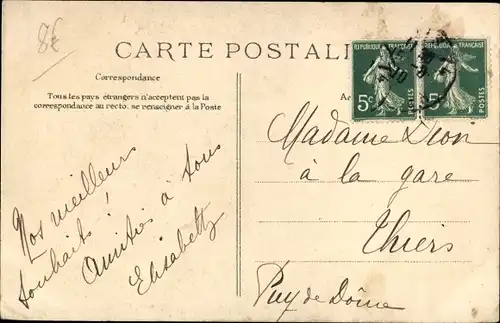 8€
CARTE POSTALE
Correspondance
Tous les pays étrangers n'acceptent pas la
correspondance au recto. se renseigner à la Poste
REPUBLIQUE FRANÇAISE
5c
POSTES
REPUBLIQUE FRANÇAISE
5c
POSTES
Nos meilleurs
souhaits !
Amitiés à tous
Elisabeth
Madame Dion
à la gare
Thiers
Puy de Dôme